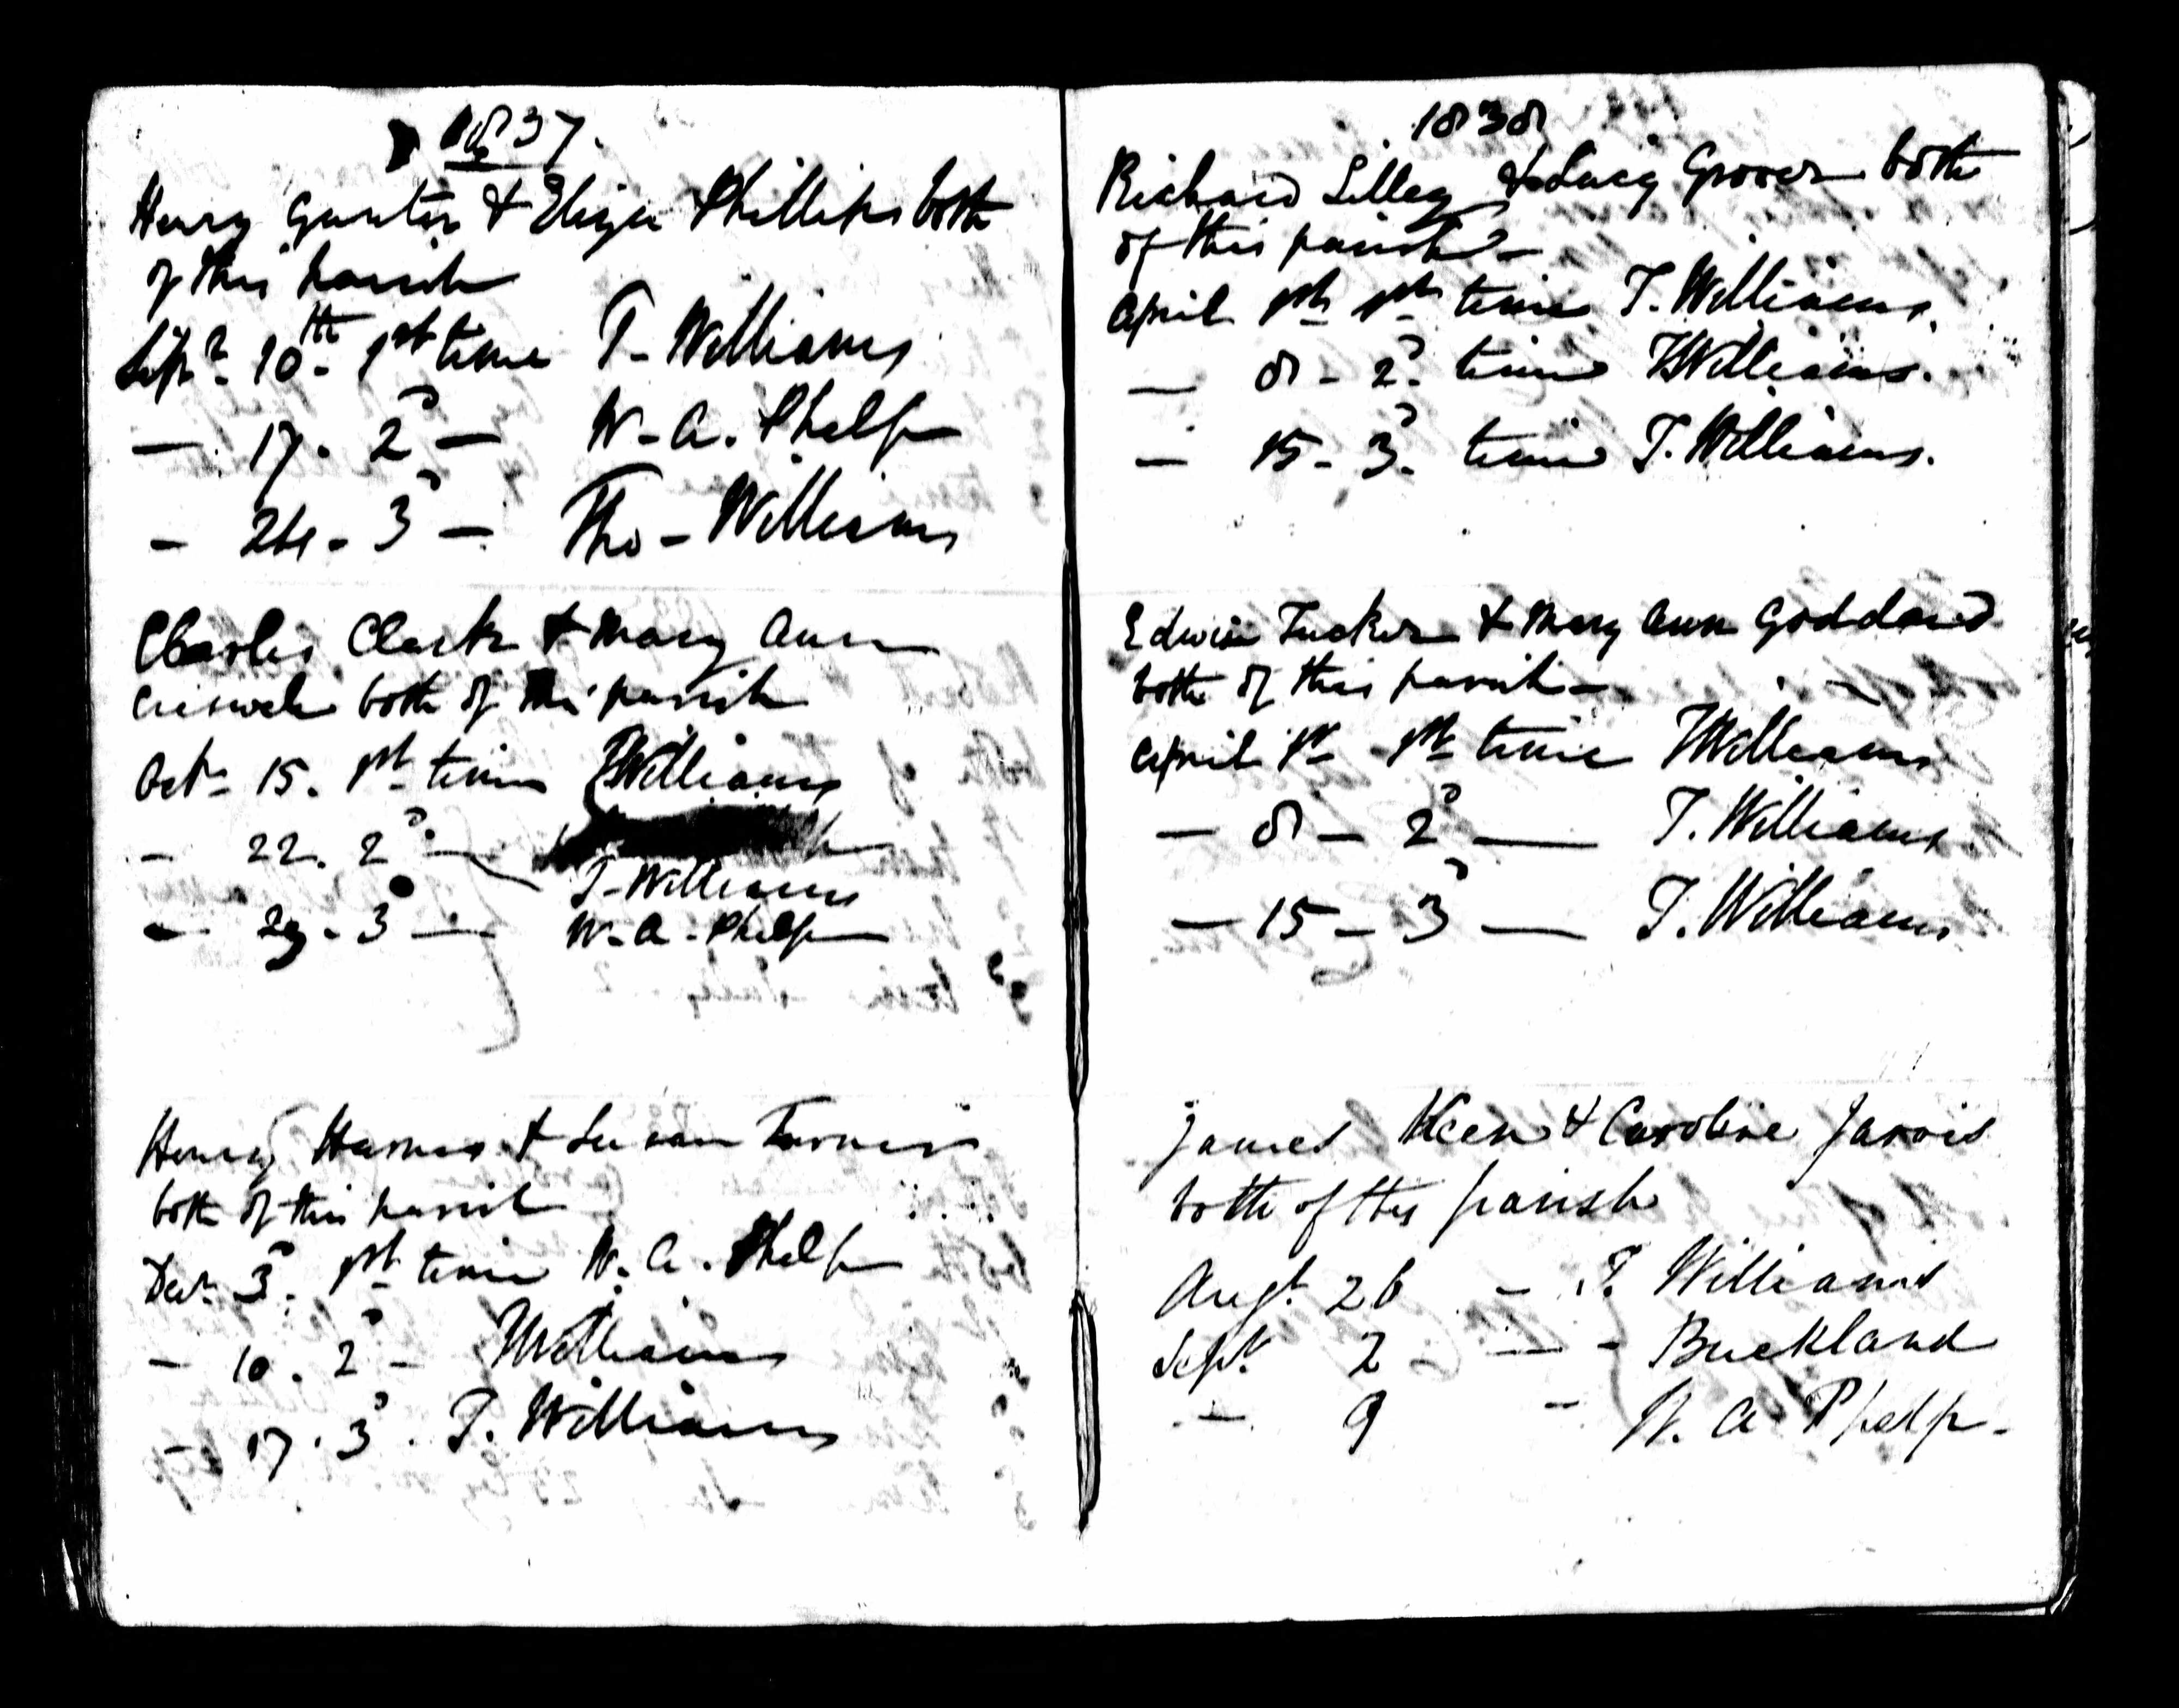 1837.
Henry Gunter & Eliza Phillips both
of this parish
Sepr 10th 1st time T. Williams
— 17. 2d — W. A. Phelp
— 24 - 3d — Tho - Williams
Charles Clark & Mary Ann
both of this parish
Octr 15. 1st time T Williams
— 22. 2d —
T. Williams
— 29 - 3d — W. A. Phelp
Henry & Susan Turner
both of this parish
Decr 3d. 1st time W. A. Phelp
— 10. 2d — T Williams
— 17. 3d. T. Williams
1838
Richard Lilley & Lucy Grover both
of this parish —
April 1st 1st time T. Williams.
— 8 - 2d time T Williams.
— 15 - 3d time T. Williams.
Edwin Tucker & Mary Ann Goddard
both of this parish —
April 1st 1st time T Williams
— 8 — 2d — T. Williams
— 15 — 3d — T. Williams
James Keen & Caroline Jarvis
both of this parish
Augt 26 - T. Williams
Sept 2 — - Buckland
— 9 - W. A. Phelp -